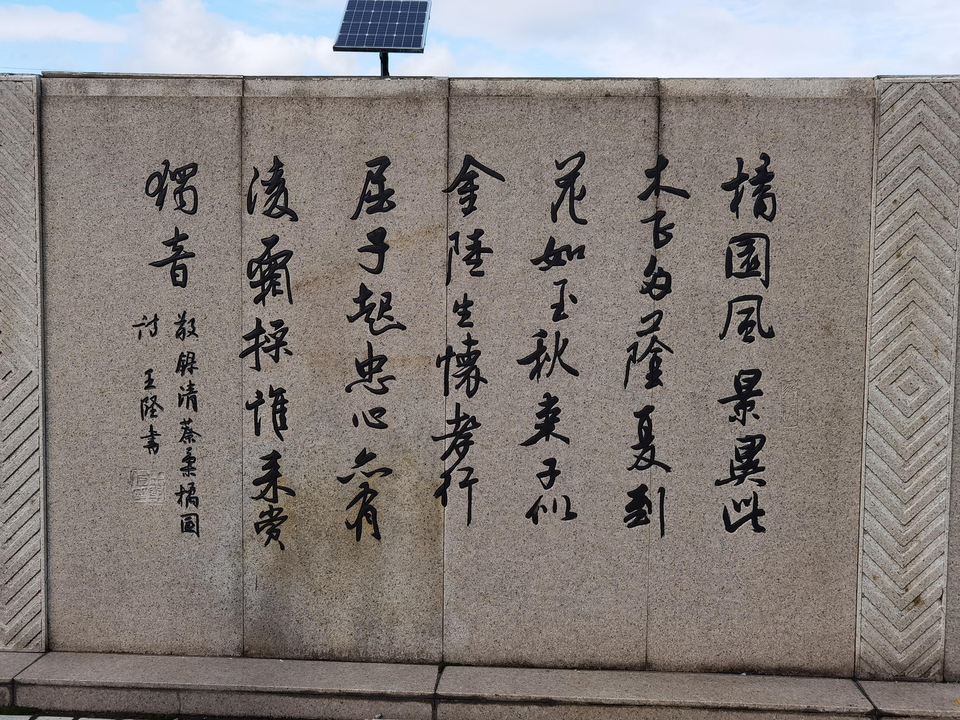 橘園風景異此
木正多蔭夏到
花如玉秋来子似
金陸生懷孝行
屈子起忠心亦有
淩霜操誰来賞
獨音
敬錄清蔡柔橘園
詩 王隆書